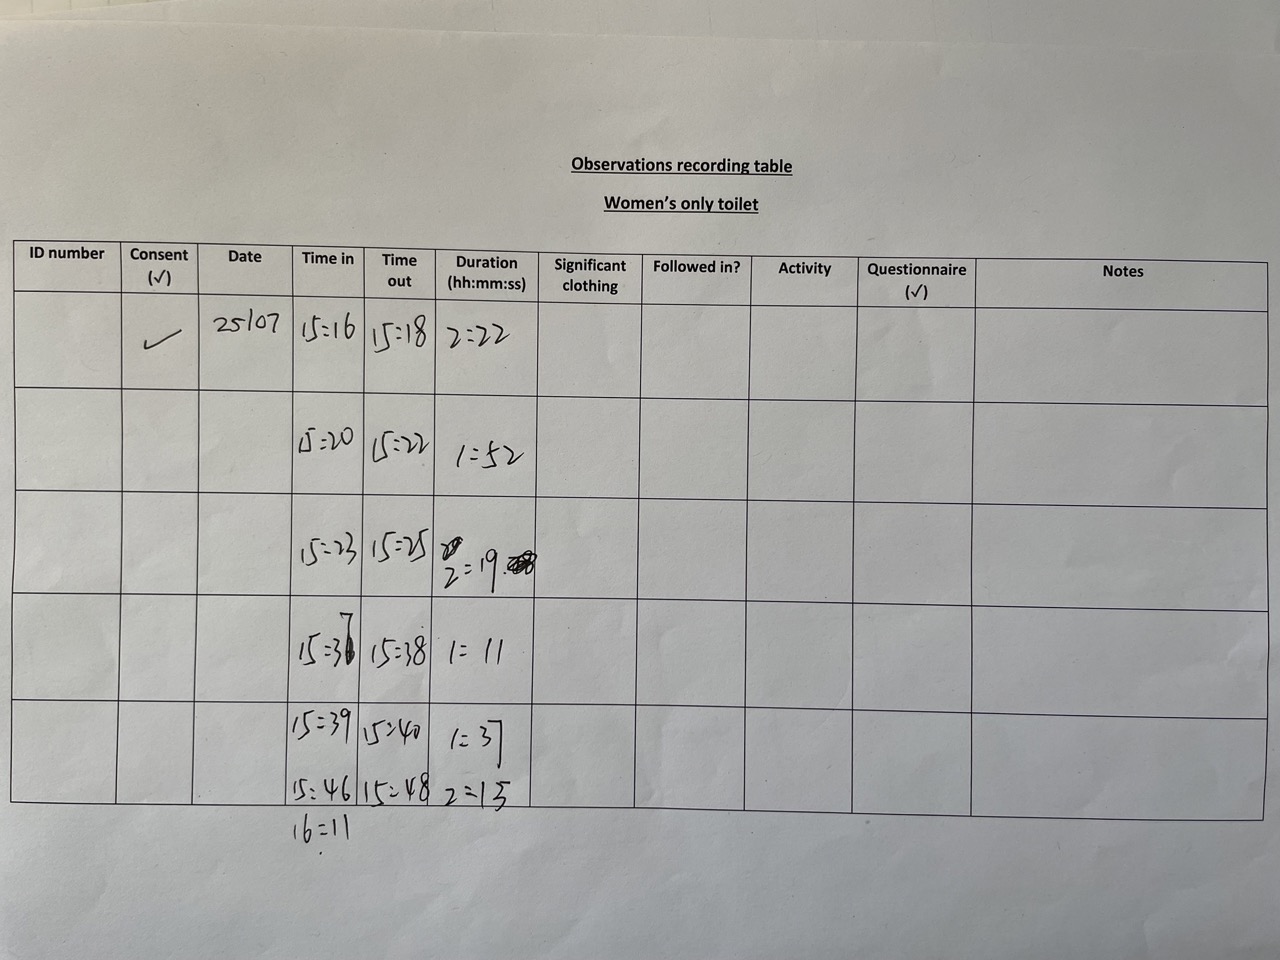 Observations recording table
Women's only toilet
ID number Consent (✓) Date Time in Time out Duration (hh:mm:ss) Significant clothing Followed in? Activity Questionnaire (✓) Notes
✓ 25/07 15=16 15=18 2=22
15=20 15=22 1=52
15=23 15=25 2=19
15=37 15=38 1=11
15=39 15=40 1=37
15=46 15=48 2=15
16=11